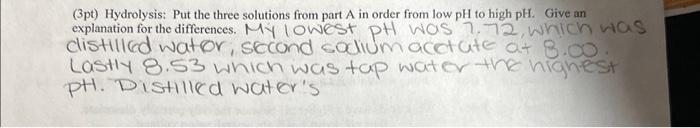 (3pt) Hydrolysis: Put the three solutions from part A in order from low pH to high pH. Give an
explanation for the differences. My lowest pH was 7.72, which was
distilled water, second sodium acetate at 8.00.
Lastly 8.53 which was tap water the highest
pH. Distilled water's